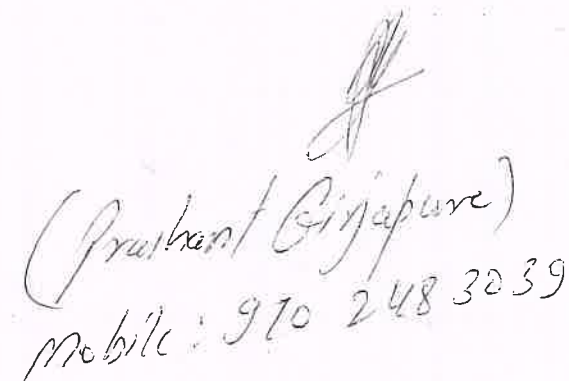 (Prashant Girjapure)
Mobile: 970 248 3039